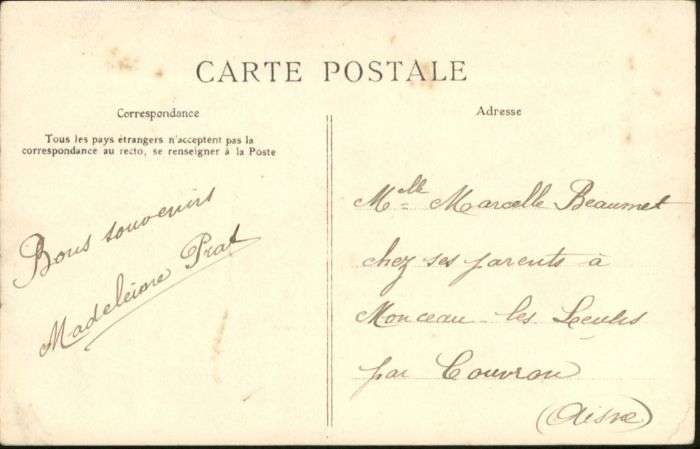 CARTE POSTALE
Correspondance
Tous les pays étrangers n'acceptent pas la
correspondance au recto, se renseigner à la Poste
Bons souvenirs
Madeleine Prat
Adresse
Mlle Marcelle Beaumet
chez ses parents à
Monceau-les Leups
par Couvron
(Aisne)